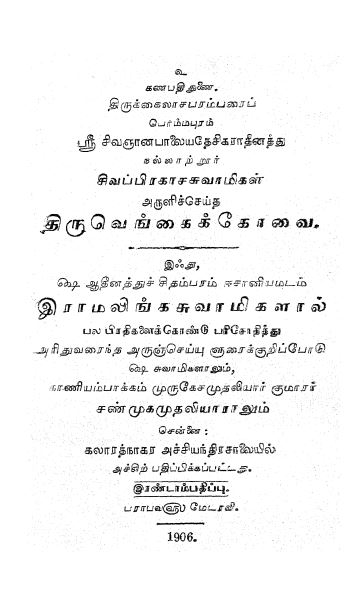 உ
கணபதிதுணை.
திருக்கைலாசபரம்பரைப்
பெர்ம்மபுரம்
ஸ்ரீ சிவஞானபாலையதேசிகராதீனத்து
நல்லாற்றூர்
சிவப்பிரகாசசுவாமிகள்
அருளிச்செய்த
திருவெங்கைக்கோவை.
இஃது,
௸ ஆதீனத்துச் சிதம்பரம் ஈசானியமடம்
இராமலிங்கசுவாமிகளால்
பல பிரதிகளைக்கொண்டு பரிசோதித்து
அரிதுவரைந்த அருஞ்செய்யு ளுரைக்குறிப்போடு
௸ சுவாமிகளாலும்,
காணியம்பாக்கம் முருகேசமுதலியார் குமாரர்
சண்முகமுதலியாராலும்
சென்னை:
கலாரத்நாகர அச்சியந்திரசாலையில்
அச்சிற் பதிப்பிக்கப்பட்டது.
இரண்டாம்பதிப்பு.
பராபவ௵ மேடரவி.
1906.